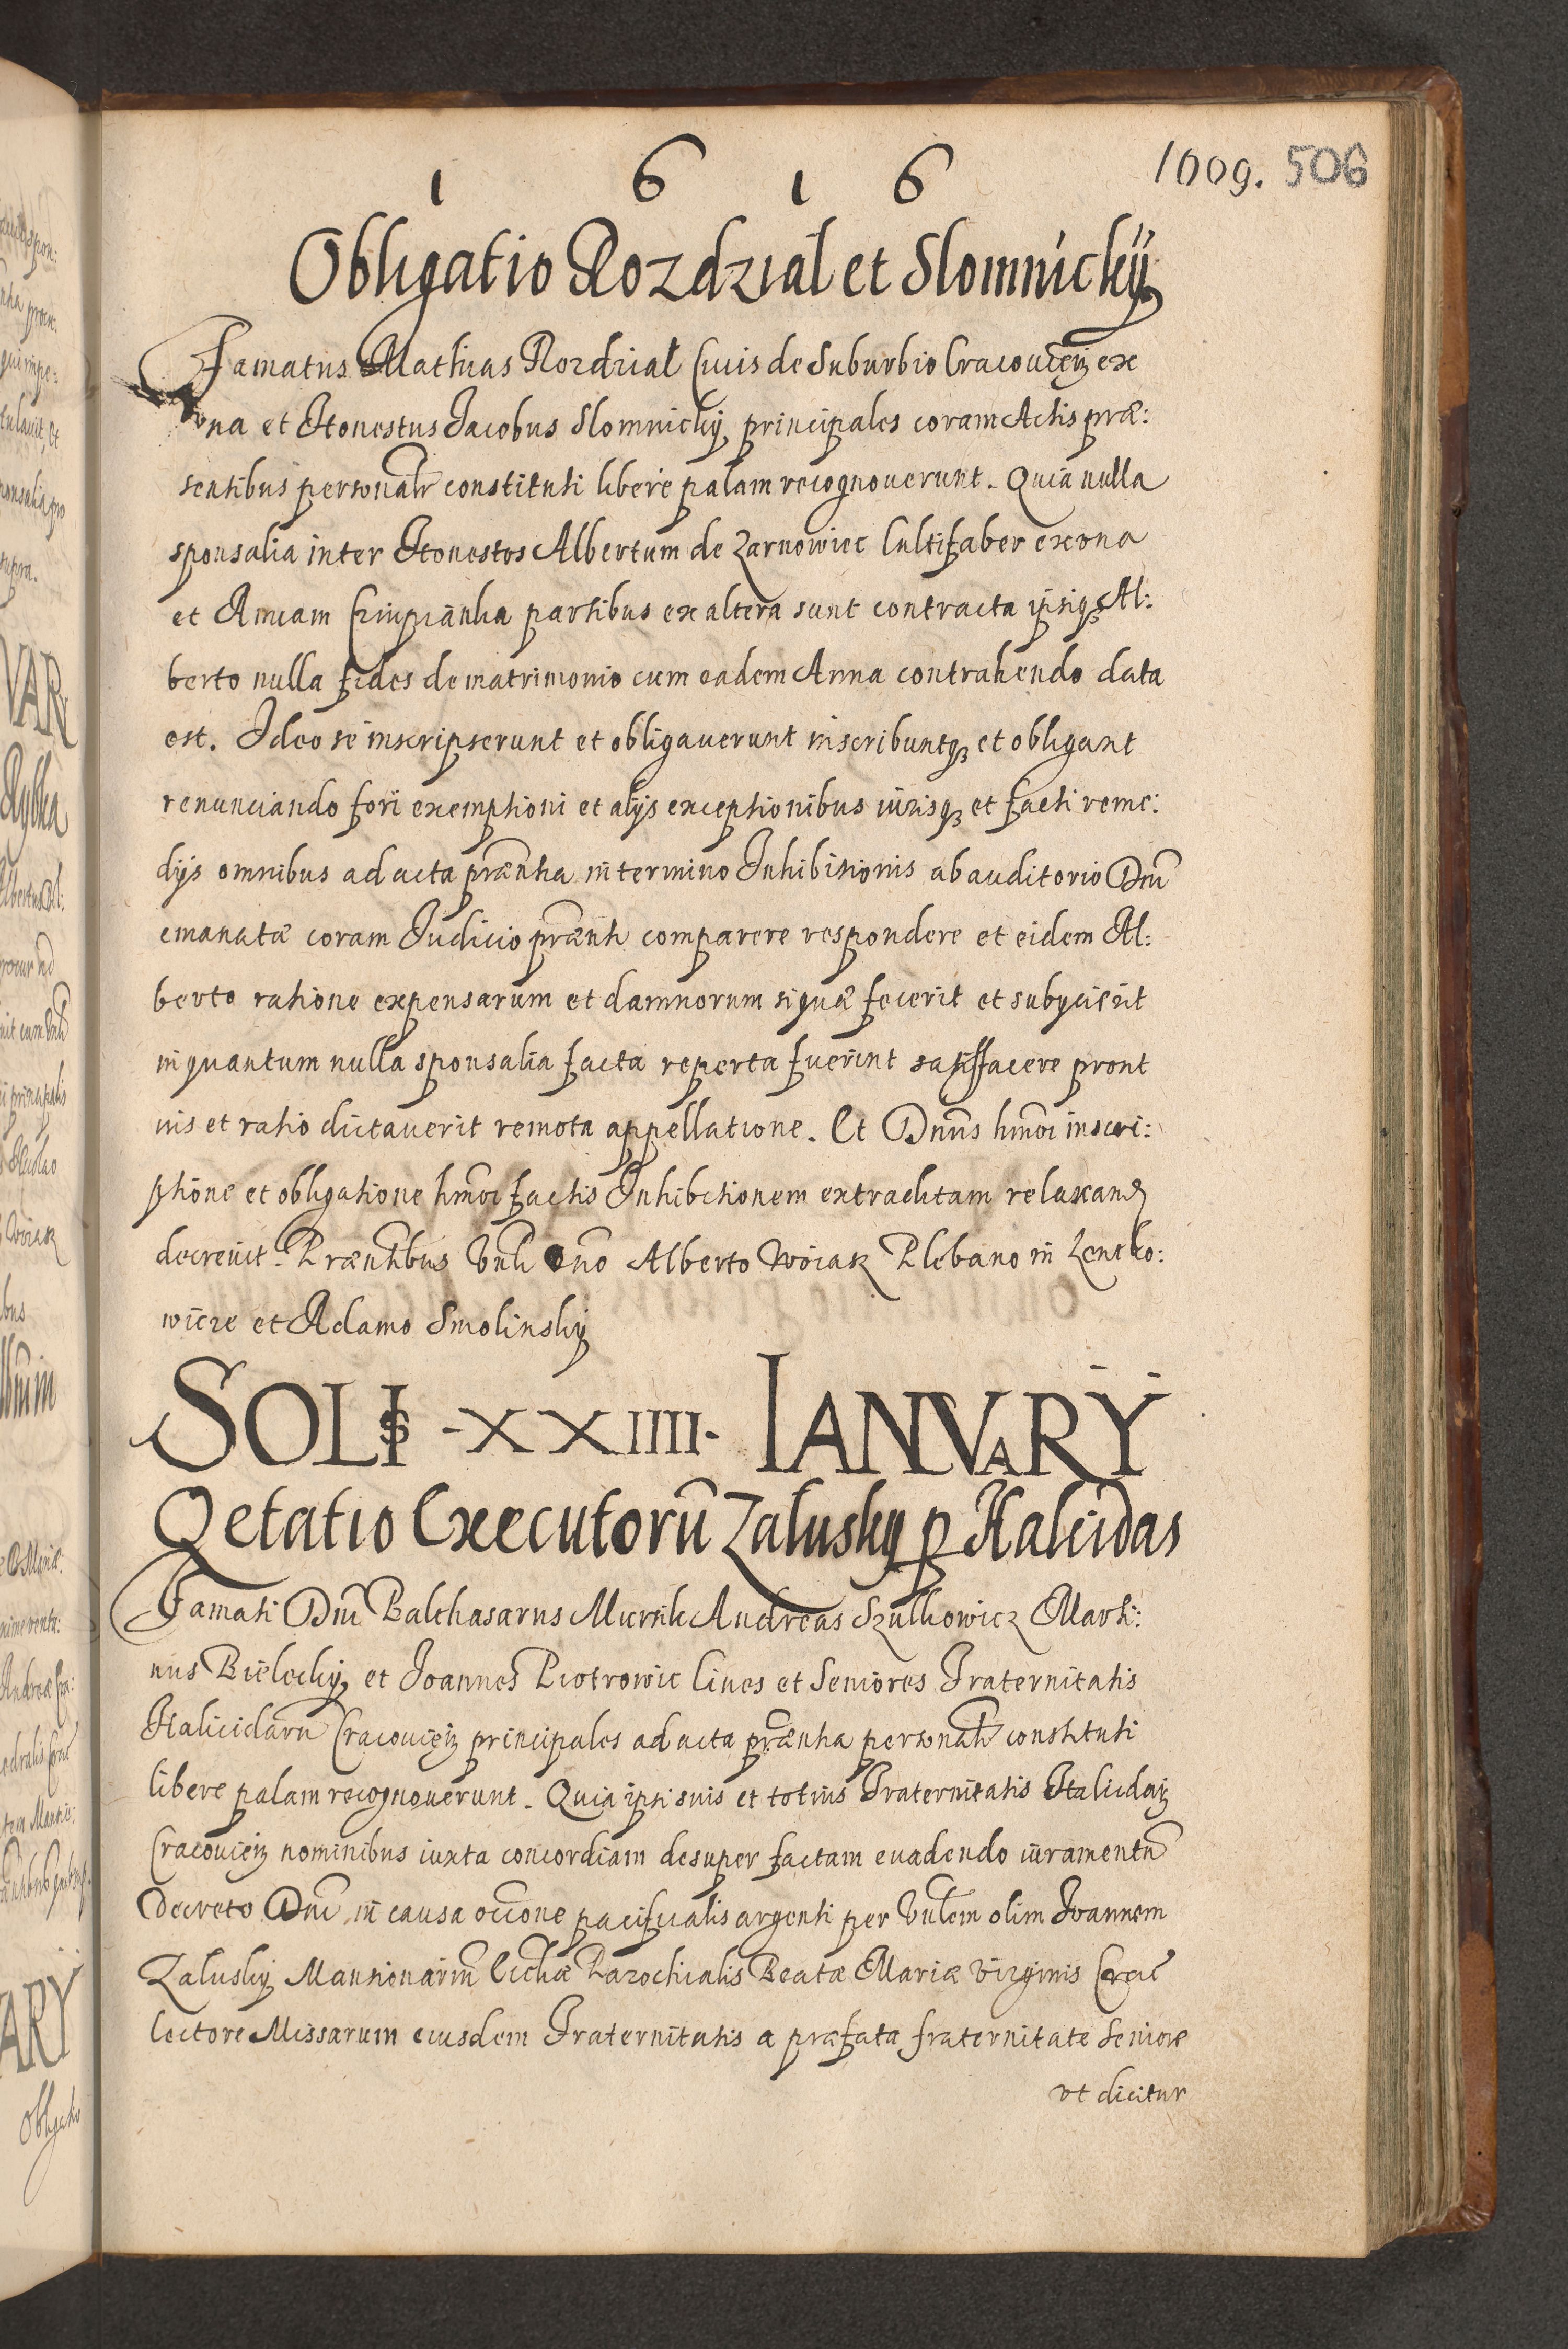 1 6 1 6
1009. 506
Obligatio Rozdzial et Slomnickÿ
Famatus Mathias Rozdzial Civis de Suburbio Cracovien̄ ex
una et Honestus Jacobus Slomnickÿ principales coram Actis præ:
sentibus personalr̄ constituti libere palam recognoverunt. Quia nulla
sponsalia inter Honestos Albertum de Zarnowiec Cultifaber ex ona
et Annam partibus ex altera sunt contracta ipsiqꝫ Al:
berto nulla fides de matrimonio cum eadem Anna contrahendo data
est. Ideo se inscripserunt et obligaverunt inscribuntqꝫ et obligant
renunciando fori exemptioni et alÿs exceptionibus iurisqꝫ et facti reme:
dÿs omnibus ad acta præn̄tia in termino Inhibitionis ab auditorio Dn̄i
emanatæ coram Iudicio præn̄ti comparere respondere et eidem Al:
berto ratione expensarum et damnorum siquæ fecerit et subÿcierit
in quantum nulla sponsalia facta reperta fuerint satisfacere prout
ius et ratio dictaverit remota appellatione. Et Dn̄us hmōi inscri:
ptione et obligatione hmōi factis Inhibitionem extraditam relaxand
decrevit. Præn̄tibus Vnli Dno Alberto Woiak Plebano in Zentko:
wicze et Adamo Smolinskÿ
SOLIS -XXIIII- IANVARY
Qetatio Executorū Zaluskÿ p Halicidas
Famati Dn̄i Balthasarus Micnik Andreas Szulkowicz Marti:
nus Bieleckÿ et Joannes Piotrowic Cives et Seniores Fraternitatis
Halicidarū Cracovien̄ principales ad acta præn̄tia personalr̄ constituti
libere palam recognoverunt. Quia ipsi suis et totius Fraternitatis Halicidaꝝ
Cracovien̄ nominibus iuxta concordiam desuper factam evadendo iuramentū
Decreto Dn̄i in causa occōne pacificalis argenti per Vnlem olim Joannem
Zaluskÿ Mansionariū Ecclīæ Parochialis Beatæ Mariæ Virginis Crac̄
lectore Missarum eiusdem Fraternitatis a præfata fraternitate Seniore
vt dicitur